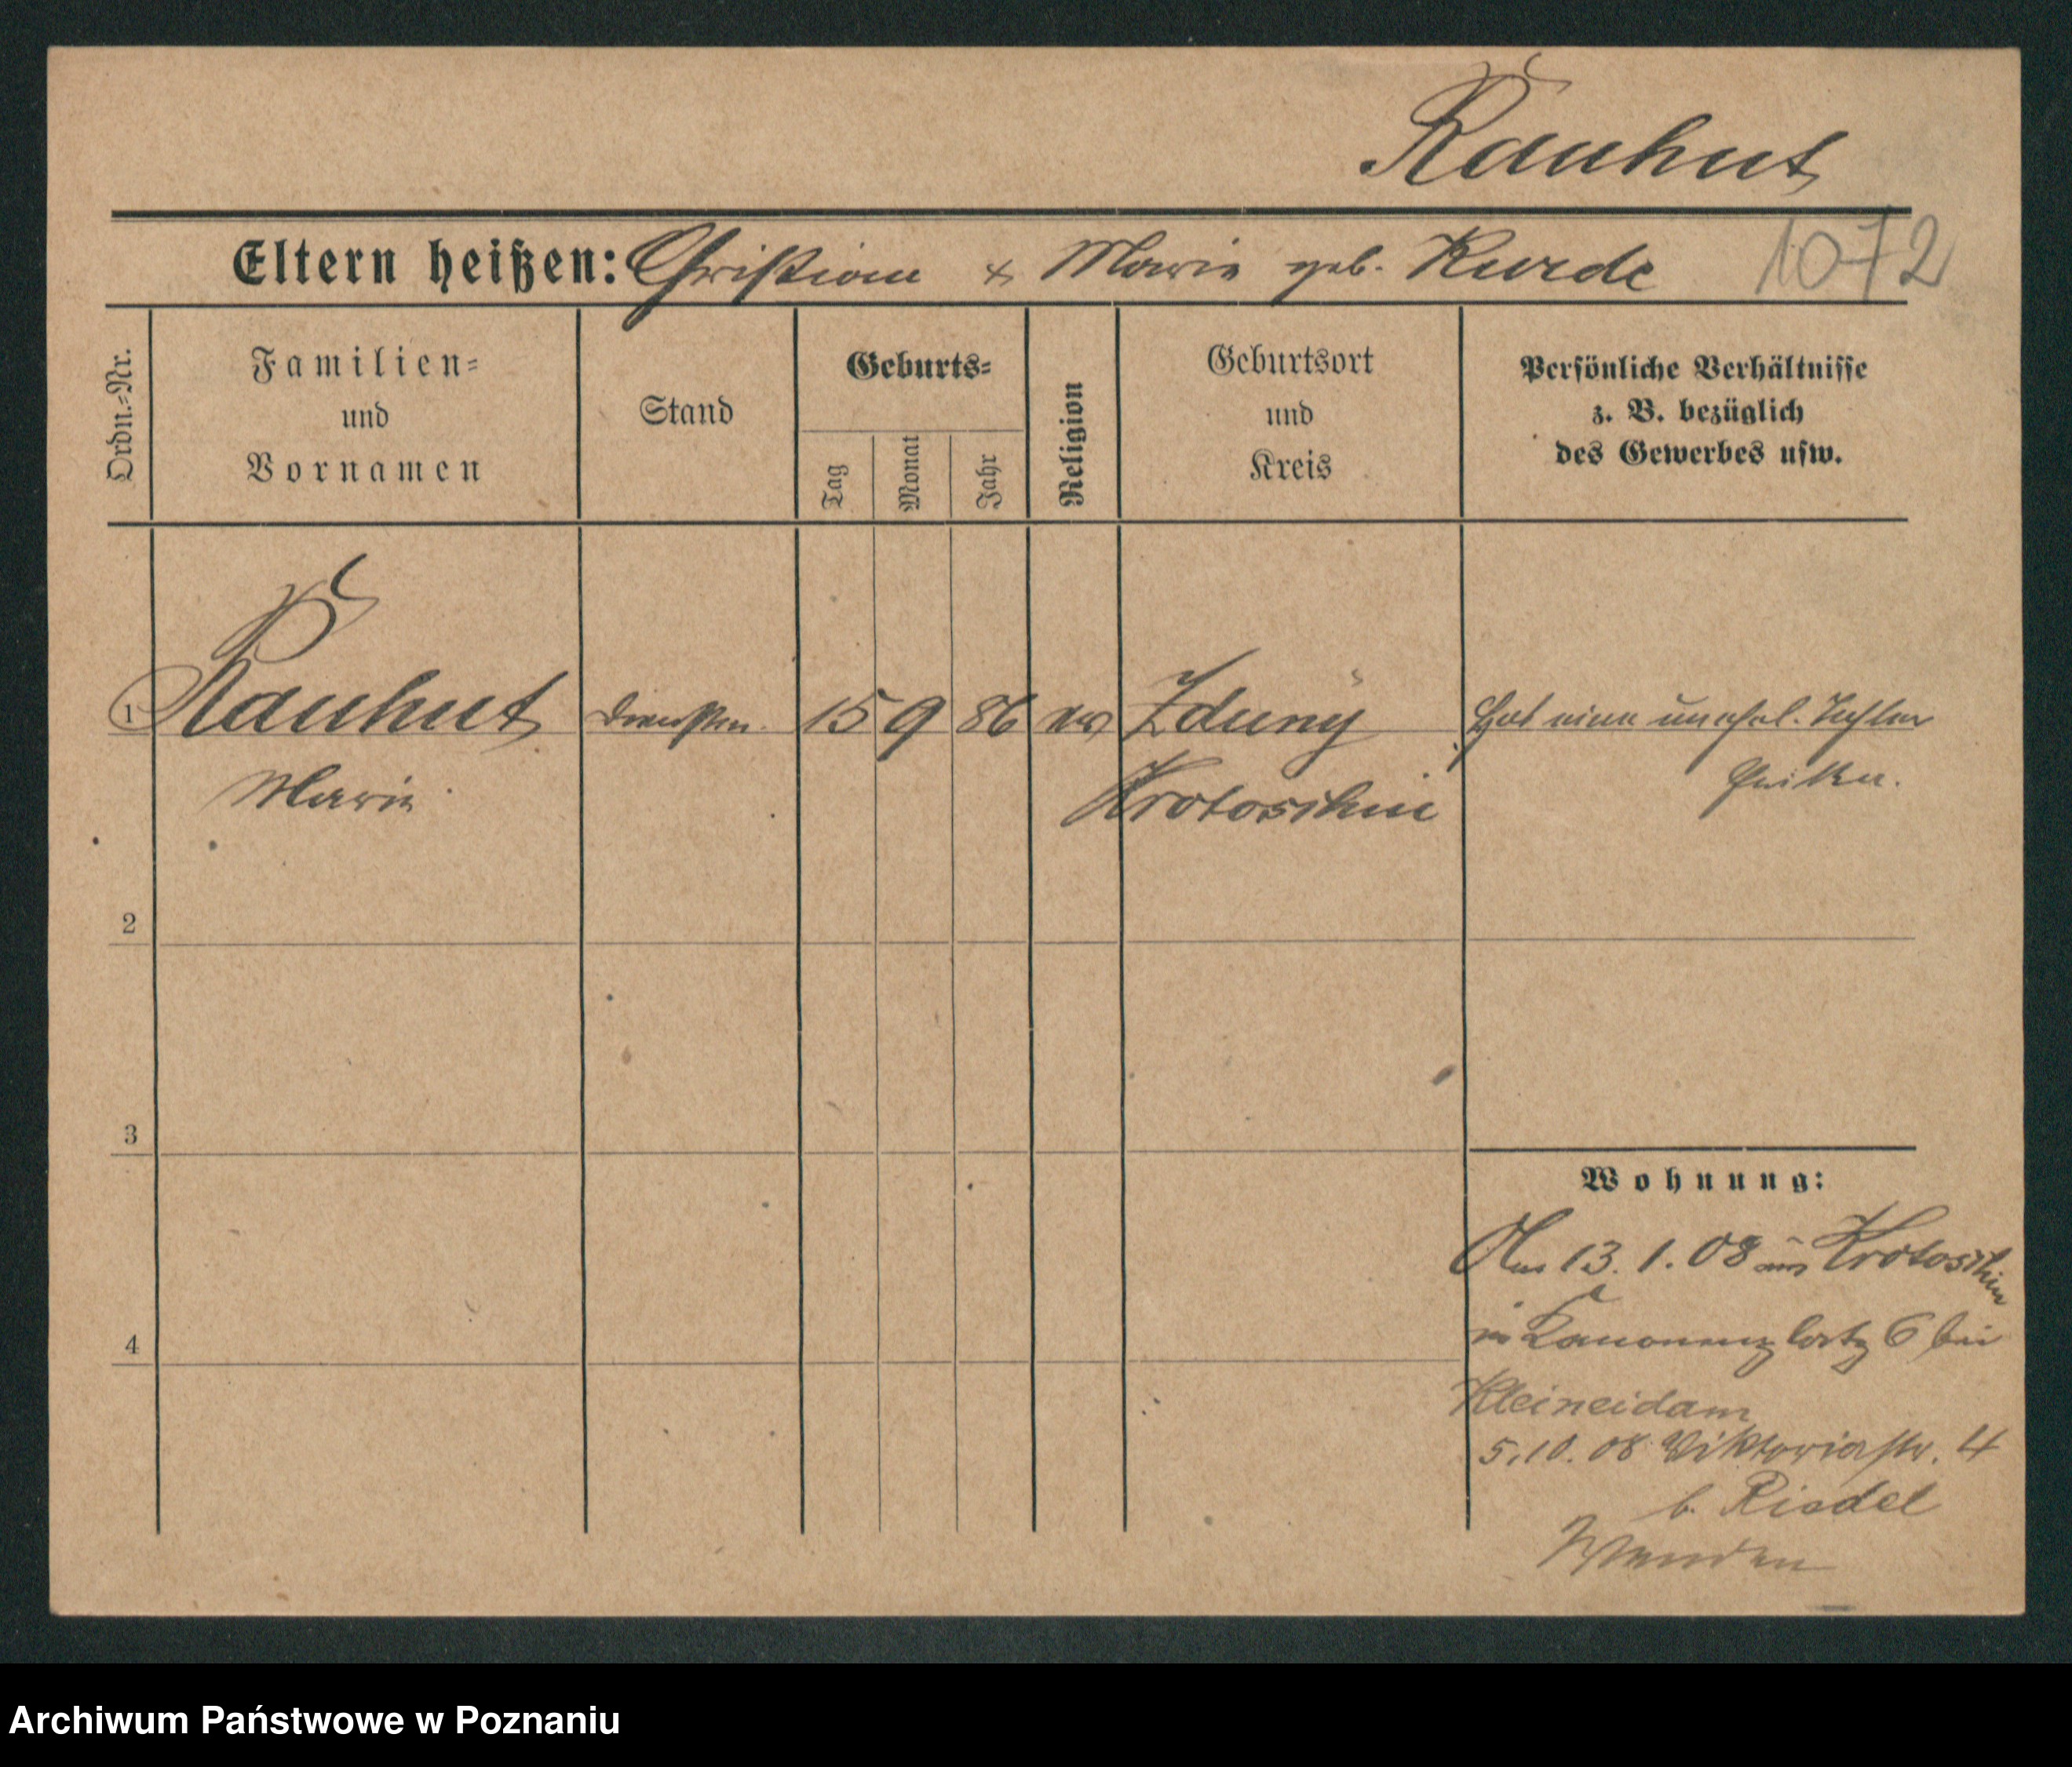 Rauhut
Eltern heißen: Christian + Marie geb. Kurde
1072
Ordn.-Nr.
Familien-
und
Vornamen
Stand
Geburts-
Tag
Monat
Jahr
Religion
Geburtsort
und
Kreis
Persönliche Verhältnisse
z. B. bezüglich
des Gewerbes usw.
1 Rauhut 15 9 86 ev Zduny Hat eine unehel. Tochter
Marie Krotoschin
2
3
4
Wohnung:
Am 13.1.08 aus Krotoschin
in Kanonenplatz 6 bei
Kleineidam
5.10.08 Viktoriastr. 4
b. Riedel
Archiwum Państwowe w Poznaniu